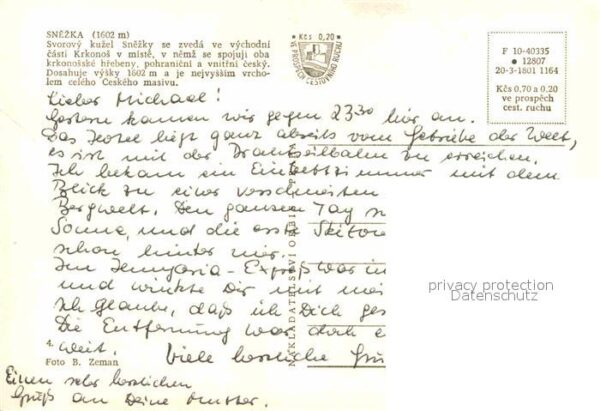 SNĚŽKA (1602 m)
Svorový kužel Sněžky se zvedá ve východní
části Krkonoš v místě, v němž se spojují oba
krkonošské hřebeny, pohraniční a vnitřní český.
Dosahuje výšky 1602 m a je nejvyšším vrcho-
lem celého Českého masivu.
Kčs 0,20
VE PROSPĚCH CESTOVNÍHO RUCHU
F 10-40335
• 12807
20-3-1801 1164
Kčs 0.70 a 0.20
ve prospěch
cest. ruchu
Lieber Michael!
Gestern kamen wir gegen 23³⁰ hier an.
Das Hotel liegt ganz abseits vom Getriebe der Welt,
es ist mit der Drahtseilbahn zu erreichen.
Ich bekam ein Einbettzimmer mit dem
Blick zu einer verschneiten
Bergwelt. Den ganzen Tag s
Sonne, und die erste Skitou
schon hinter mir.
Im Hungaria-Expreß war i
und winkte Dir mit mei
Ich glaube, daß ich Dich ges
Die Entfernung war doch e
weit. Viele herzliche Grü
Einen sehr herzlichen
Gruß an Deine Mutter.
4.
Foto B. Zeman
NAKLADATELSTVÍ ORBIS
privacy protection
Datenschutz